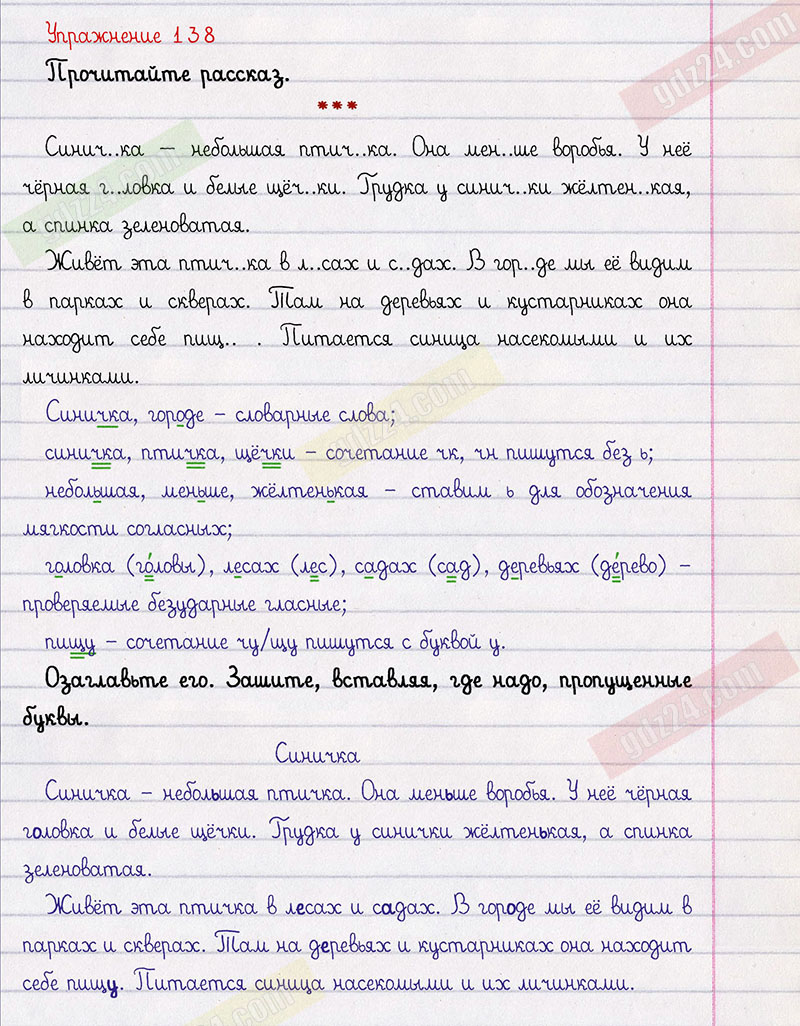 Упражнение 138
gdz24.com
Прочитайте рассказ.
***
Синич..ка – небольшая птич..ка. Она мен..ше воробья. У неё
чёрная г..ловка и белые щёч..ки. Грудка у синич..ки жёлтен..кая,
gdz24.com
а спинка зеленоватая.
Живёт эта птич..ка в л..сах и с..дах. В гор..де мы её видим
в парках и скверах. Там на деревьях и кустарниках она
находит себе пищ.. . Питается синица насекомыми и их
личинками.
gdz24.com
Синичка, городе – словарные слова;
синичка, птичка, щёчки – сочетание чк, чн пишутся без ь;
небольшая, меньше, жёлтенькая – ставим ь для обозначения
мягкости согласных;
головка (го́ловы), лесах (лес), садах (сад), деревьях (де́рево) –
проверяемые безударные гласные;
пищу – сочетание чу/щу пишутся с буквой у.
Озаглавьте его. Зашите, вставляя, где надо, пропущенные
буквы.
gdz24.com
Синичка
Синичка – небольшая птичка. Она меньше воробья. У неё чёрная
головка и белые щёчки. Грудка у синички жёлтенькая, а спинка
зеленоватая.
Живёт эта птичка в лесах и садах. В городе мы её видим в
парках и скверах. Там на деревьях и кустарниках она находит
себе пищу. Питается синица насекомыми и их личинками.